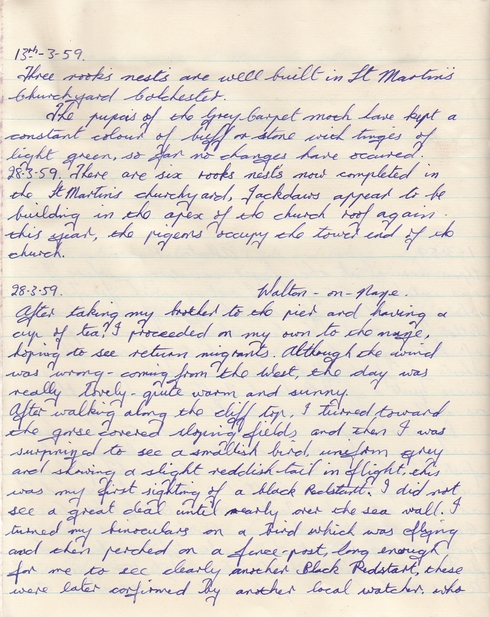 13th-3-59.
Three rooks nests are well built in St Martin's
Churchyard Colchester.
The pupais of the Grey Carpet moth have kept a
constant colour of buff or stone with tinges of
light green, so far no changes have occurred.
28-3-59. There are six rooks nests now completed in
the St Martins churchyard, Jackdaws appear to be
building in the apex of the church roof again
this year, the pigeons occupy the tower end of the
church.
28-3-59. Walton-on-Naze.
After taking my brother to the pier and having a
cup of tea, I proceeded on my own to the naze,
hoping to see return migrants. Although the wind
was wrong - coming from the West, the day was
really lovely - quite warm and sunny.
After walking along the cliff top, I turned toward
the gorse covered sloping fields, and then I was
surprized to see a smallish bird, uniform grey
and showing a slight reddish tail in flight, this
was my first sighting of a black Redstart. I did not
see a great deal until nearly over the sea wall. I
turned my binoculars on a bird which was flying
and then perched on a fence-post, long enough
for me to see clearly another Black Redstart, these
were later confirmed by another local watcher, who